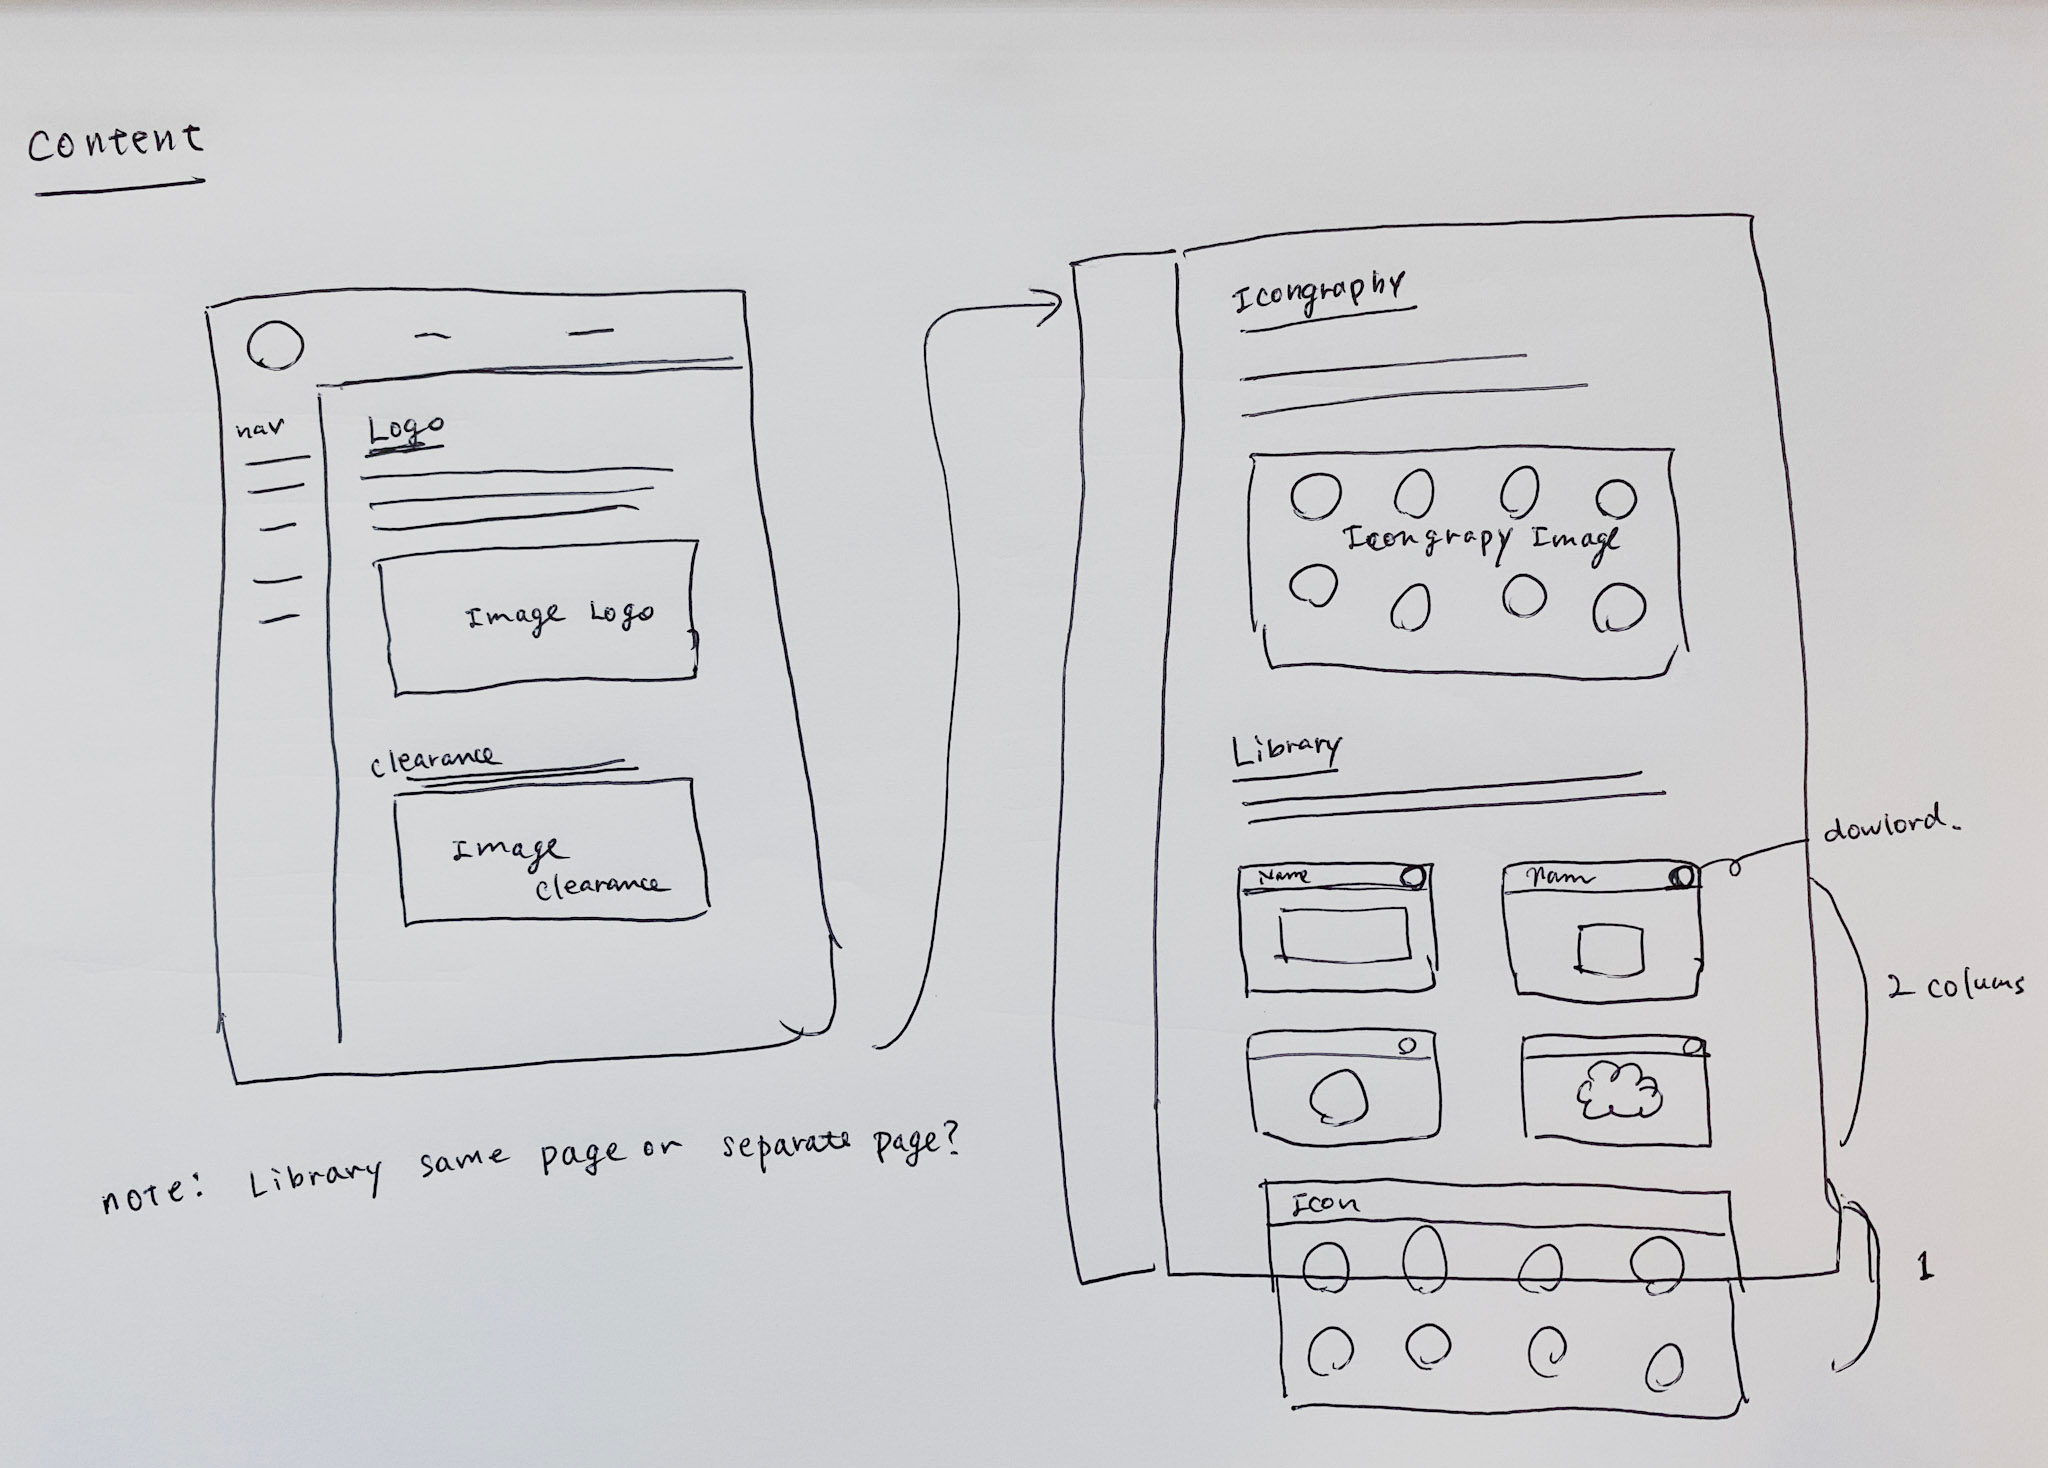 Content
nav
Logo
Image Logo
clearance
Image
clearance
note: Library same page or separate page?
Icongraphy
Icongrapy Image
Library
Name
Nam
dowlord.
2 colums
Icon
1